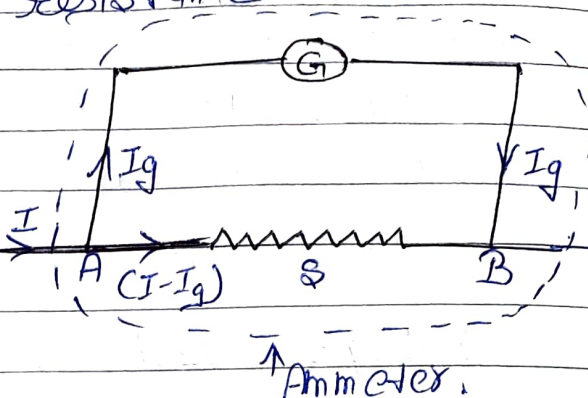 G
Ig
Ig
I
A
(I-Ig)
S
B
↑Ammeter.